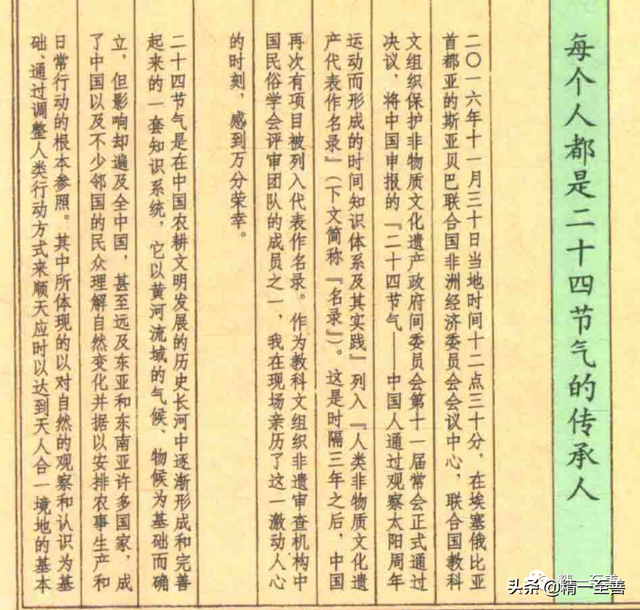 每个人都是二十四节气的传承人
二〇一六年十一月三十日当地时间十二点三十分，在埃塞俄比亚
首都亚的斯亚贝巴联合国非洲经济委员会会议中心，联合国教科
文组织保护非物质文化遗产政府间委员会第十一届常会正式通过
决议，将中国申报的『二十四节气——中国人通过观察太阳周年
运动而形成的时间知识体系及其实践』列入『人类非物质文化遗
产代表作名录』（下文简称『名录』）。这是时隔三年之后，中国
再次有项目被列入代表作名录。作为教科文组织非遗审查机构中
国民俗学会评审团队的成员之一，我在现场亲历了这一激动人心
的时刻，感到万分荣幸。
二十四节气是在中国农耕文明发展的历史长河中逐渐形成和完善
起来的一套知识系统，它以黄河流域的气候、物候为基础而确
立，但影响却遍及全中国，甚至远及东亚和东南亚许多国家，成
了中国以及不少邻国的民众理解自然变化并据以安排农事生产和
日常行动的根本参照。其中所体现的以对自然的观察和认识为基
础、通过调整人类行动方式来顺天应时以达到天人合一境地的基本
精一至善
头条@精一至善